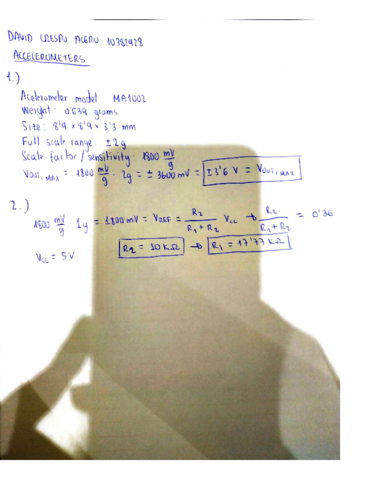 DAVID CRESPO ACERO 10382928
ACCELEROMETERS
1.)
Acelerometer model: MA1002
Weight: 0'639 grams
Size: 8'9 × 8'9 × 3'3 mm
Full scale range: ±2g
Scale factor/sensitivity: 1800 mV/g
VOUT, MAX = 1800 mV/g · 2g = ± 3600 mV = ±3'6 V = VOUT, MAX
2.)
1800 mV/g · 1g = 1800 mV = VREF = R2/(R1 + R2) VCC → R2/(R1 + R2) = 0'36
VCC = 5V R2 = 10 KΩ → R1 = 17'77 KΩ